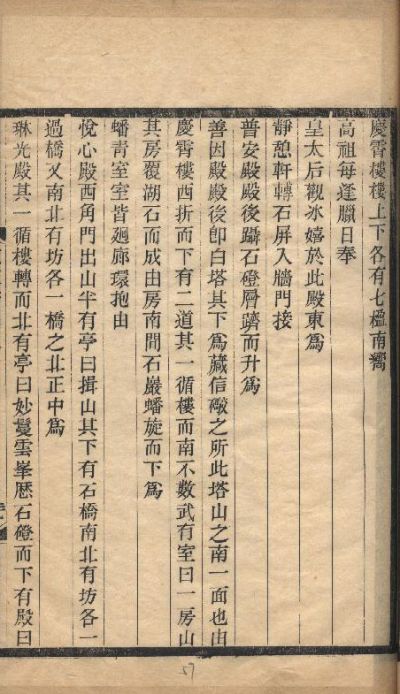 慶霄樓樓上下各有七楹南嚮
高祖每逢臘日奉
皇太后觀冰嬉於此殿東爲
靜憩軒轉石屏入牆門接
普安殿殿後躡石磴層躋而升爲
善因殿殿後卽白塔其下爲藏信礮之所此塔山之南一面也由
慶霄樓西折而下有二道其一循樓而南不數武有室曰一房山
其房覆湖石而成由房南間石巖蟠旋而下爲
蟠青室室皆廻廊環抱由
悅心殿西角門出山半有亭曰揖山其下有石橋南北有坊各一
過橋又南北有坊各一橋之北正中爲
琳光殿其一循樓轉而北有亭曰妙鬘雲峯歷石磴而下有殿曰
57